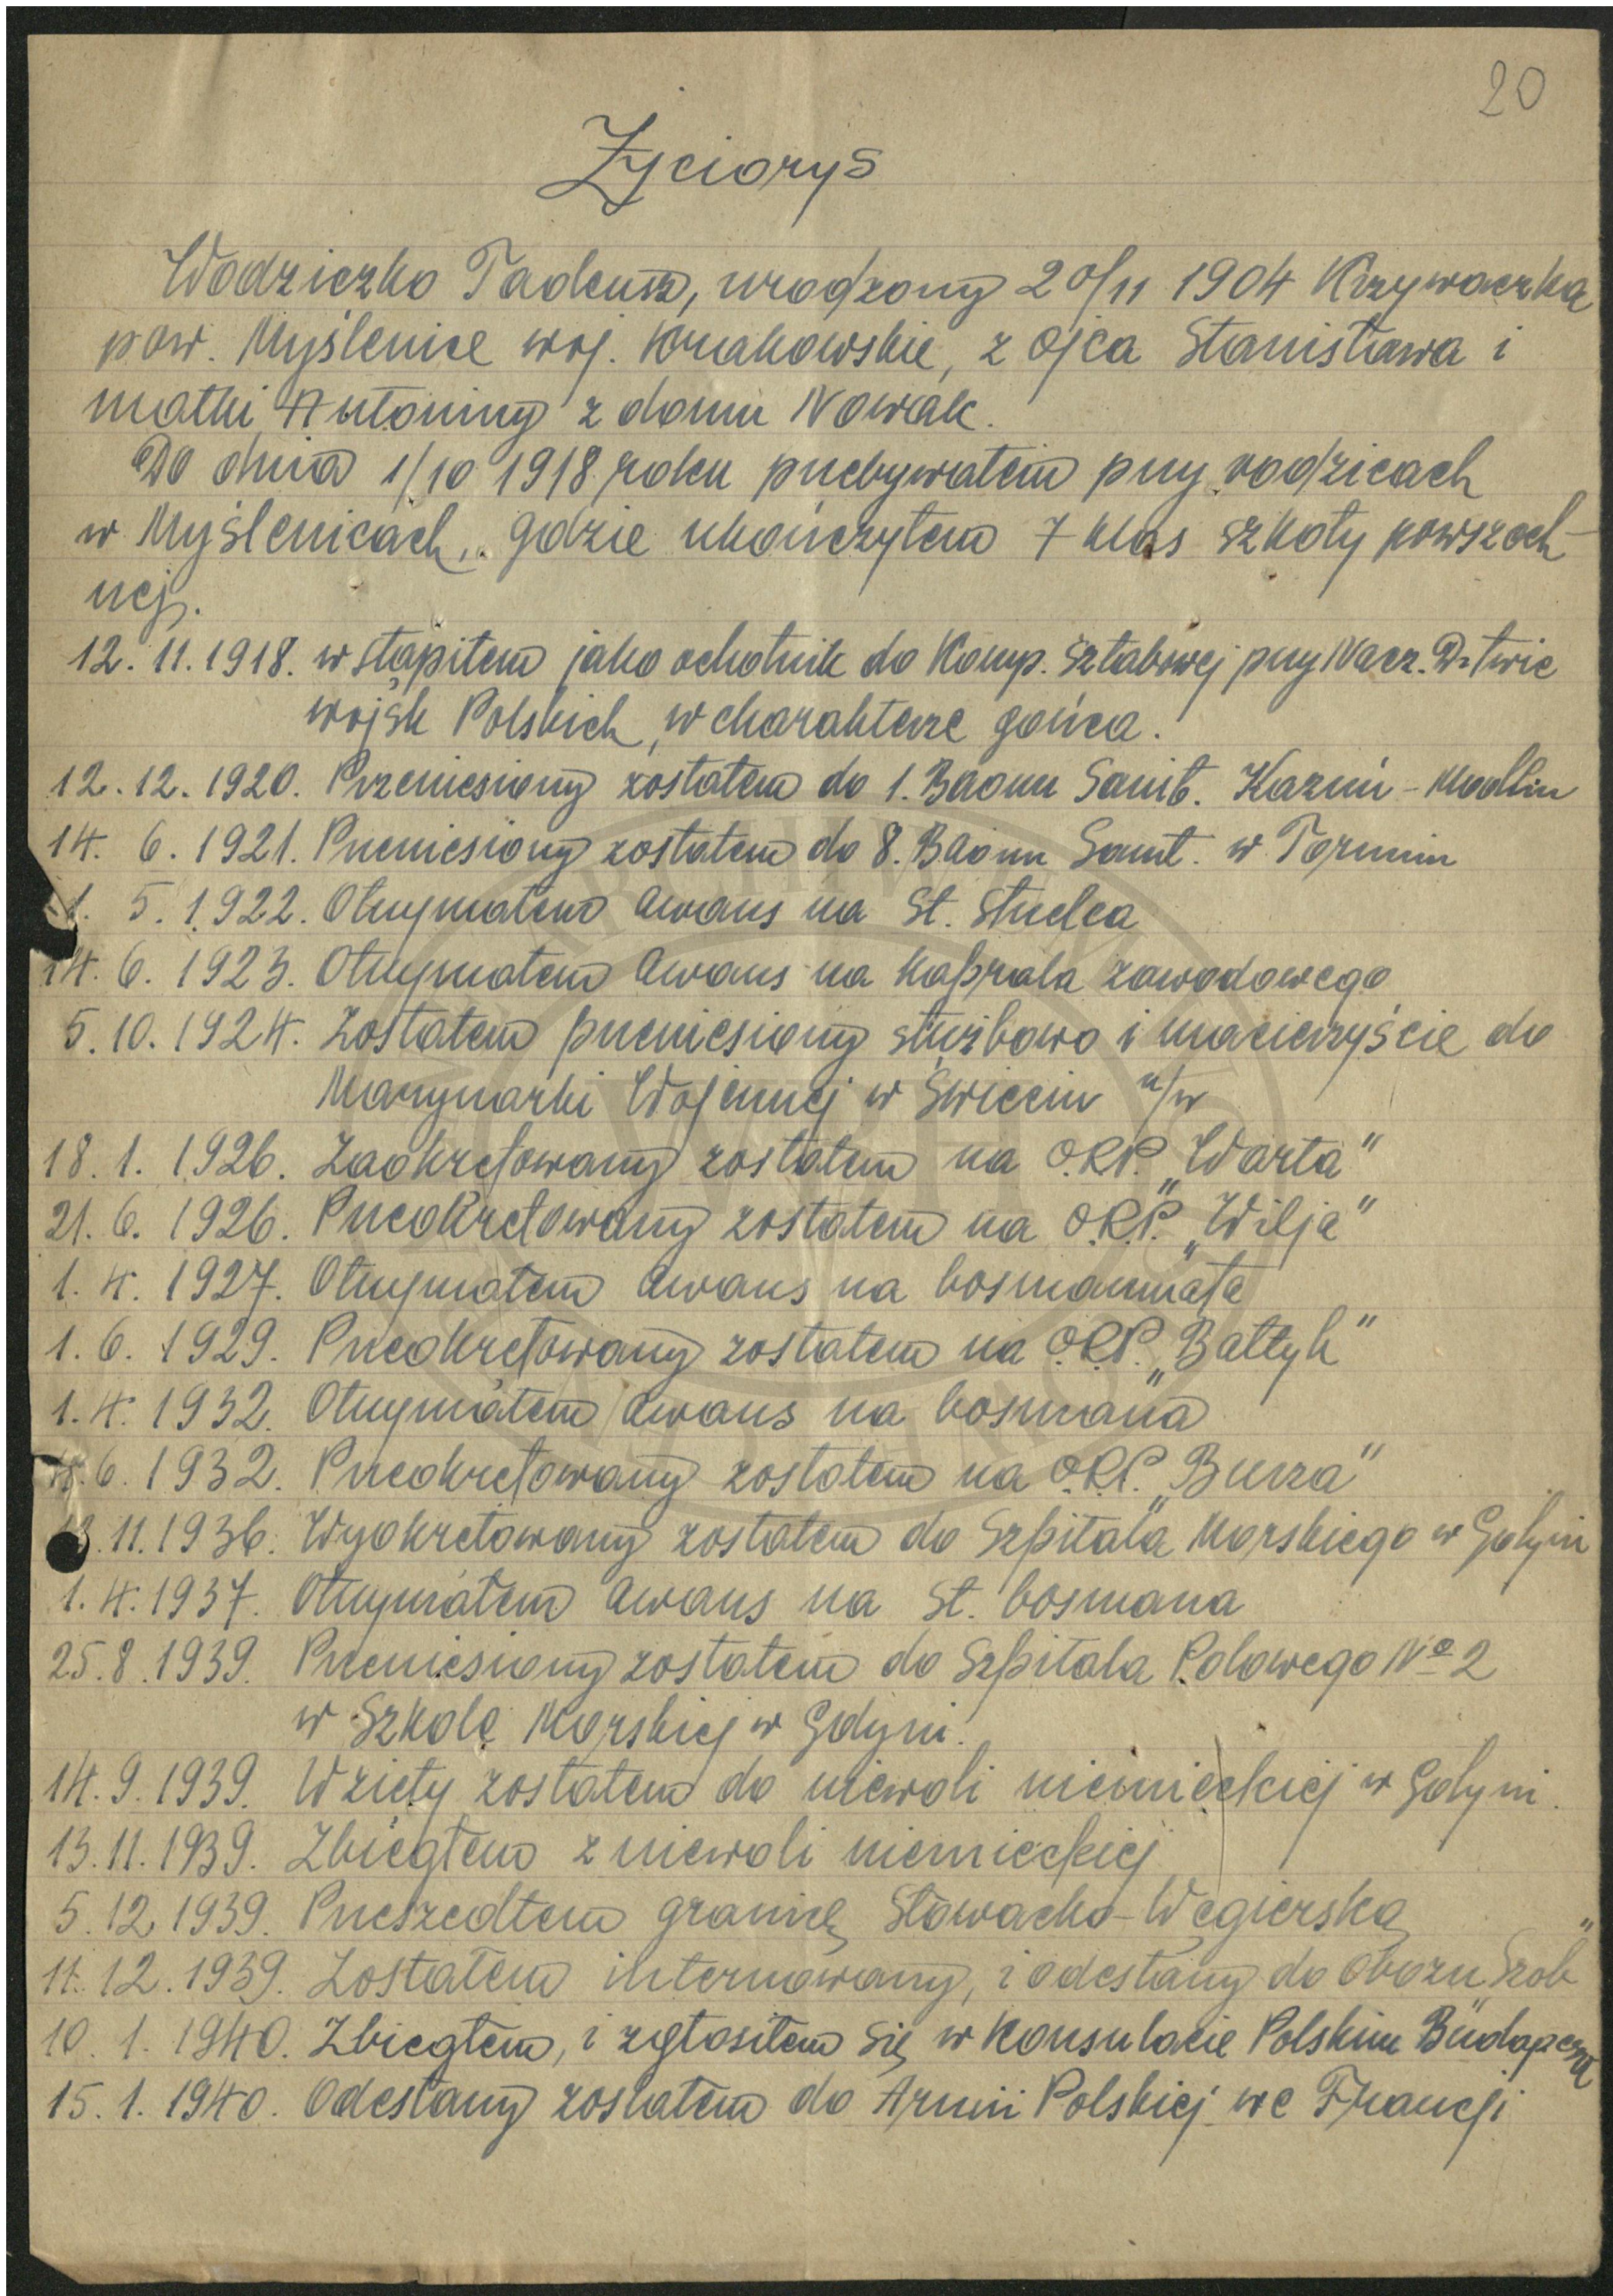 20
Życiorys
Wodziczko Tadeusz, urodzony 20/11 1904 Krzywaczka
pow. Myślenice woj. Krakowskie, z ojca Stanisława i
matki Antoniny z domu Nowak.
Do dnia 1/10 1918 roku przebywałem przy rodzicach
w Myślenicach, gdzie ukończyłem 7 klas szkoły powszech-
nej.
12. 11. 1918. wstąpiłem jako ochotnik do Komp. Sztabowej przy Nacz. D-twie
wojsk Polskich, w charakterze gońca.
12. 12. 1920. Przeniesiony zostałem do 1. Baonu Sanit. Kazuń - Modlin
14. 6. 1921. Przeniesiony zostałem do 8. Baonu Sanit. w Toruniu
1. 5. 1922. Otrzymałem awans na St. Strzelca
14. 6. 1923. Otrzymałem awans na Kaprala zawodowego
5. 10. 1924. Zostałem przeniesiony służbowo i macierzyście do
Marynarki Wojennej w Świeciu n/w
18. 1. 1926. Zaokrętowany zostałem na O.R.P. „Warta"
21. 6. 1926. Przeokrętowany zostałem na O.R.P. „Wilja"
1. 4. 1927. Otrzymałem awans na bosmanmata
1. 6. 1929. Przeokrętowany zostałem na O.R.P. „Bałtyk"
1. 4. 1932. Otrzymałem awans na bosmana
6. 1932. Przeokrętowany zostałem na O.R.P. „Burza"
3. 11. 1936. Wyokrętowany zostałem do Szpitala Morskiego w Gdyni
1. 4. 1937. Otrzymałem awans na St. bosmana
25. 8. 1939. Przeniesiony zostałem do Szpitala Polowego No 2
w Szkole Morskiej w Gdyni.
14. 9. 1939. Wzięty zostałem do niewoli niemieckiej w Gdyni.
13. 11. 1939. Zbiegłem z niewoli niemieckiej
5. 12. 1939. Przeszedłem granicę Słowacko-Węgierską
11. 12. 1939. Zostałem internowany, i odesłany do obozu „Szob"
10. 1. 1940. Zbiegłem, i zgłosiłem się w Konsulacie Polskim Budapeszt
15. 1. 1940. Odesłany zostałem do Armii Polskiej we Francji